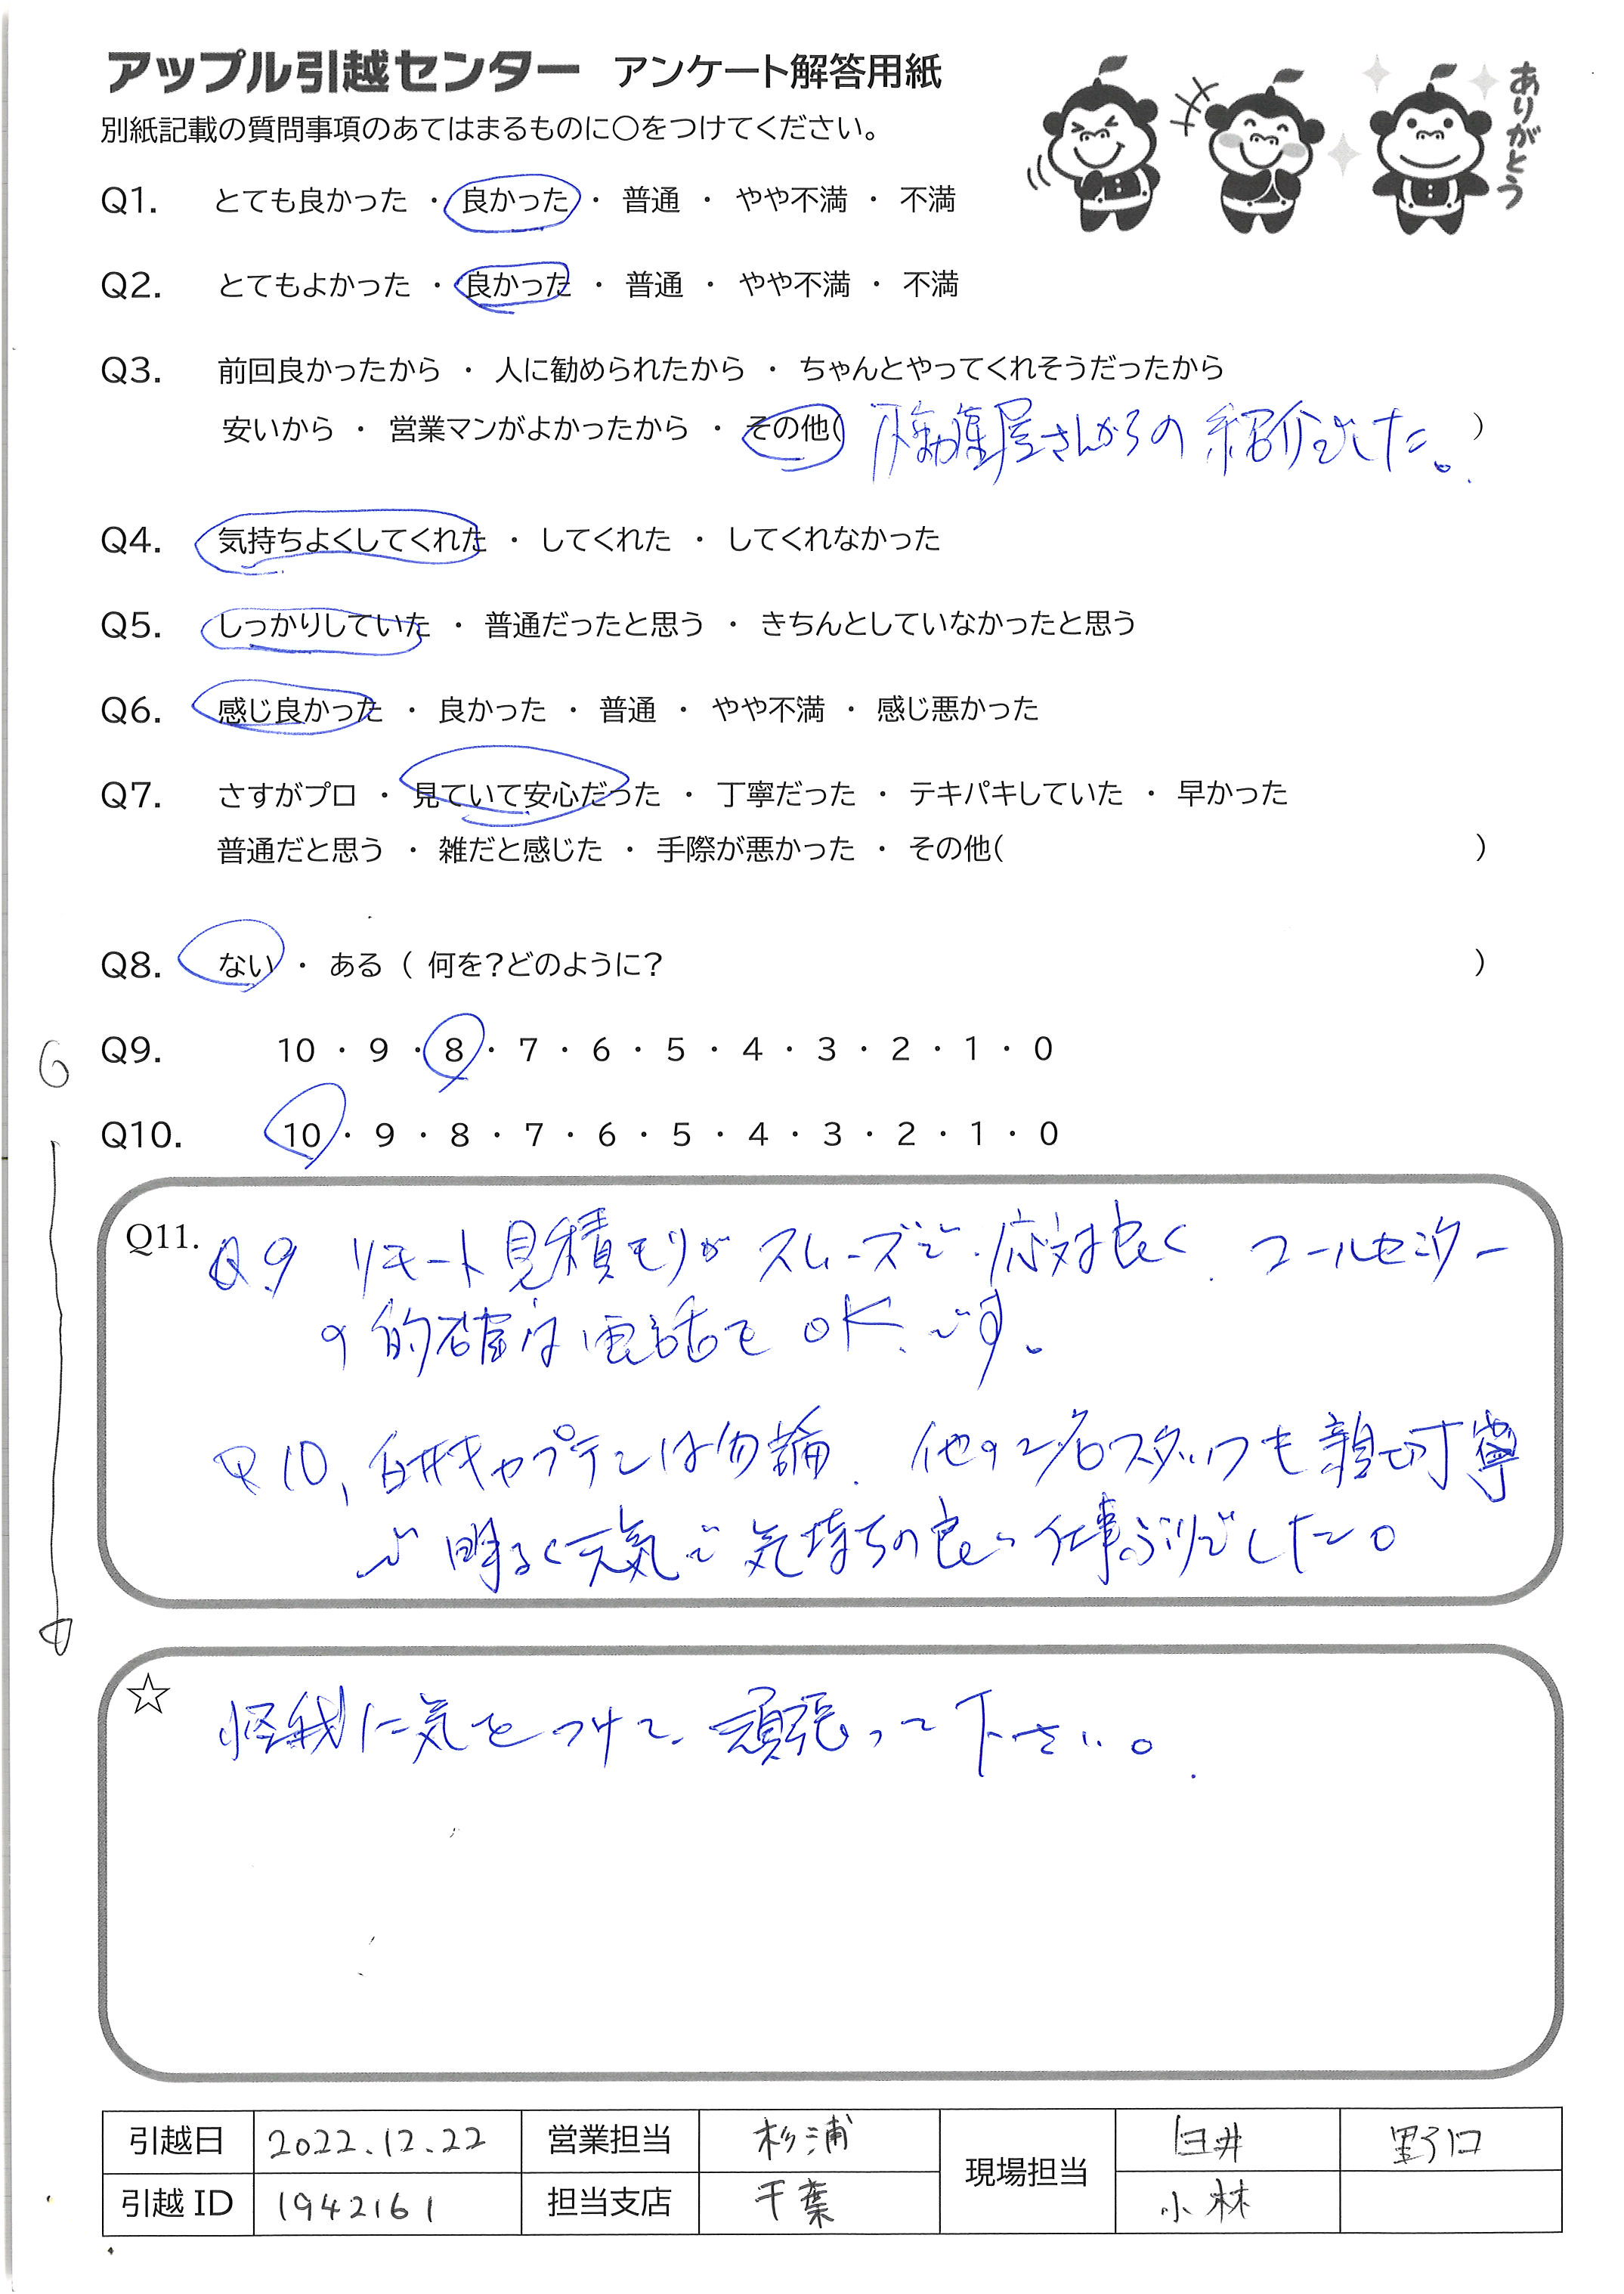 アップル引越センター アンケート解答用紙
ありがとう
別紙記載の質問事項のあてはまるものに〇をつけてください。
Q1. とても良かった ・ 良かった ・ 普通 ・ やや不満 ・ 不満
Q2. とてもよかった ・ 良かった ・ 普通 ・ やや不満 ・ 不満
Q3. 前回良かったから ・ 人に勧められたから ・ ちゃんとやってくれそうだったから
安いから ・ 営業マンがよかったから ・ その他( 不動産屋さんからの紹介でした。 )
Q4. 気持ちよくしてくれた ・ してくれた ・ してくれなかった
Q5. しっかりしていた ・ 普通だったと思う ・ きちんとしていなかったと思う
Q6. 感じ良かった ・ 良かった ・ 普通 ・ やや不満 ・ 感じ悪かった
Q7. さすがプロ ・ 見ていて安心だった ・ 丁寧だった ・ テキパキしていた ・ 早かった
普通だと思う ・ 雑だと感じた ・ 手際が悪かった ・ その他( )
Q8. ない ・ ある ( 何を?どのように? )
6
Q9. 10 ・ 9 ・ 8 ・ 7 ・ 6 ・ 5 ・ 4 ・ 3 ・ 2 ・ 1 ・ 0
Q10. 10 ・ 9 ・ 8 ・ 7 ・ 6 ・ 5 ・ 4 ・ 3 ・ 2 ・ 1 ・ 0
Q11. Q9 リモート見積モリがスムーズで、応対良く、コールセンター
の的確な電話で OK、です。
Q10、臼井キャプテンは勿論、他の2名スタッフも親切丁寧
で明るく元気で気持ちの良い仕事ぶりでした。
☆ 怪我に気をつけて、頑張って下さい。
引越日 2022.12.22 営業担当 杉浦 現場担当 臼井 野口
引越ID 1942161 担当支店 千葉 小林